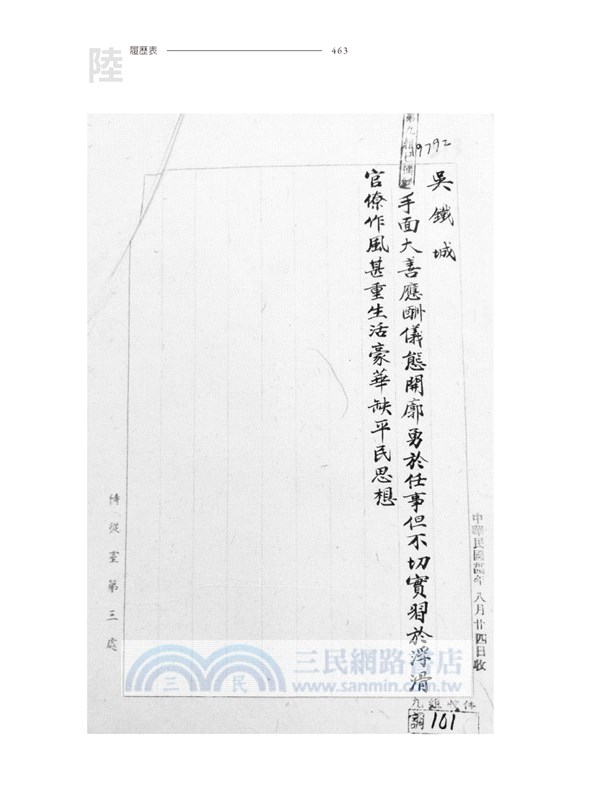 陸
履歷表 463
9792
吳鐵城
手面大善應酬儀態開廓勇於任事但不切實習於浮滑
官僚作風甚重生活豪華缺平民思想
侍從室第三處
中華民國 年八月廿四日收
九組收件
101
三民網路書店
三民
www.sanmin.com.tw